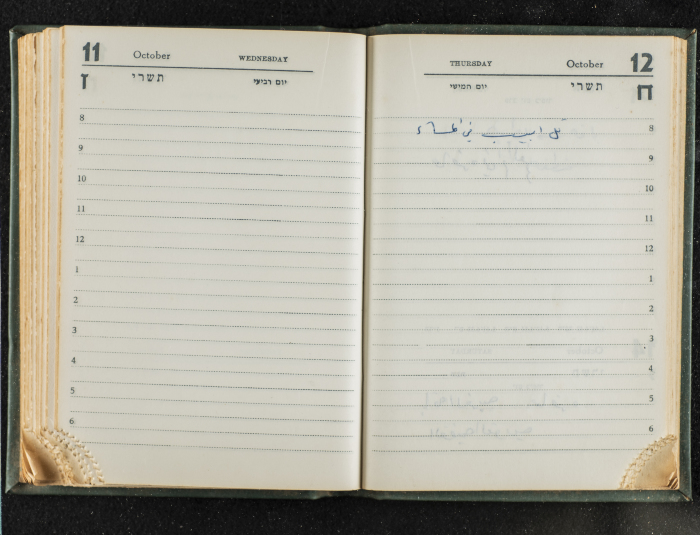 11 October WEDNESDAY
ז תשרי יום רביעי
8
9
10
11
12
1
2
3
4
5
6
THURSDAY October 12
יום חמישי תשרי ח
تل ابيب في المساء
8
9
10
11
12
1
2
3
4
5
6